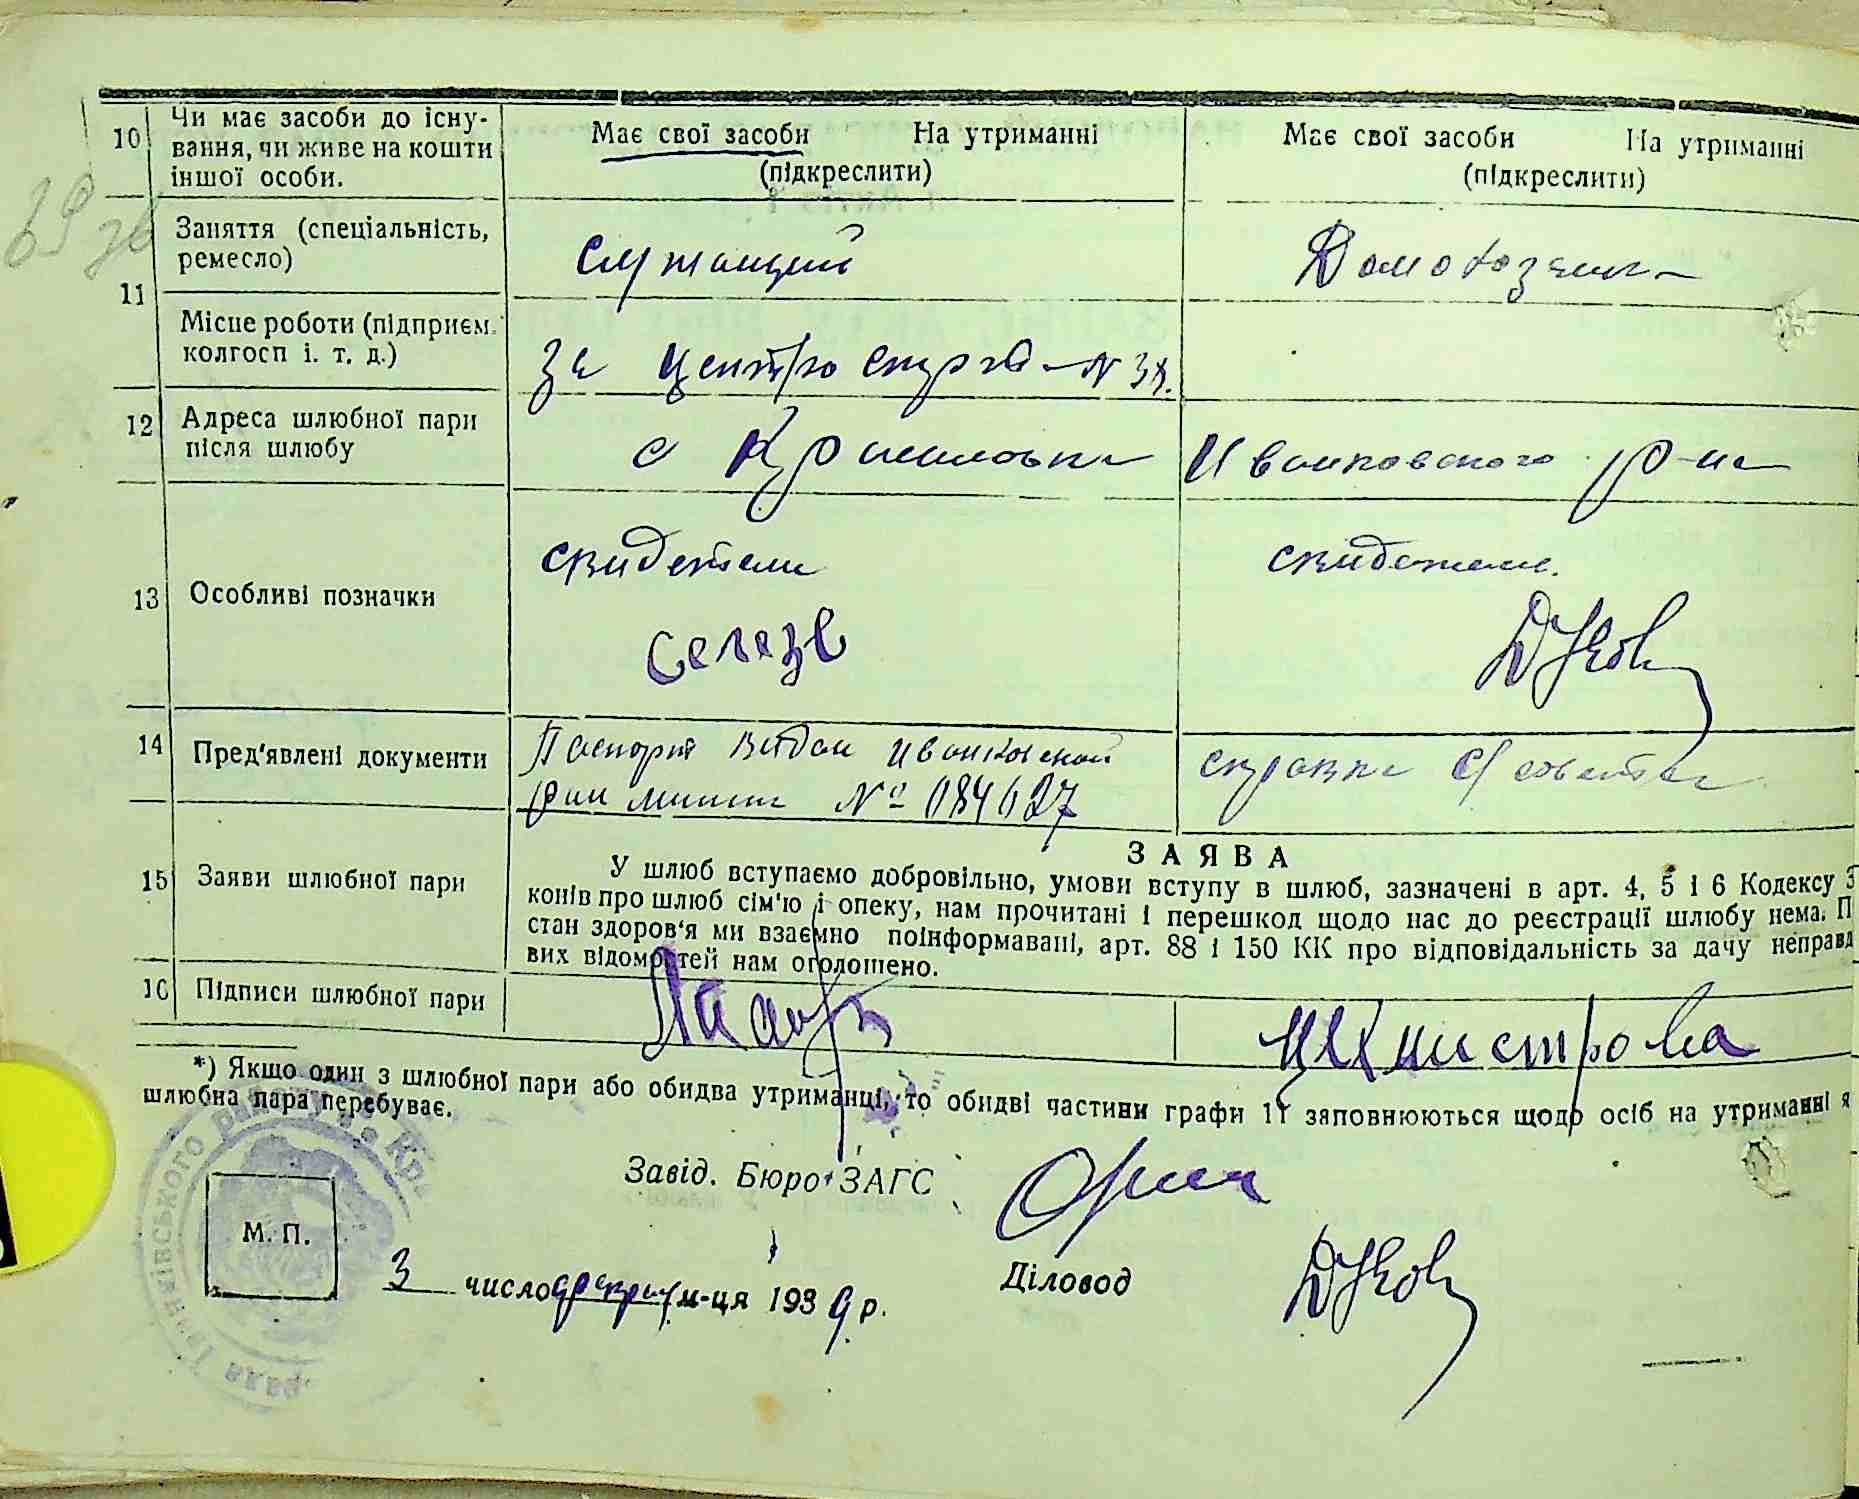 10 Чи має засоби до існу-
вання, чи живе на кошти
іншої особи.
Має свої засоби На утриманні
(підкреслити)
Має свої засоби На утриманні
(підкреслити)
11 Заняття (спеціальність,
ремесло)
Служащий
Домохозяйка
Місце роботи (підприєм.
колгосп і. т. д.)
12 Адреса шлюбної пари
після шлюбу
с Красиловка Иванковского р-на
13 Особливі позначки
свидетели
свидетели.
14 Пред'явлені документи
Паспорт видан Иванковской
№ 084627
справка с/совета
15 Заяви шлюбної пари
ЗАЯВА
У шлюб вступаємо добровільно, умови вступу в шлюб, зазначені в арт. 4, 5 і 6 Кодексу З
конів про шлюб сім'ю і опеку, нам прочитані і перешкод щодо нас до реєстрації шлюбу нема. П
стан здоров'я ми взаємно поінформавані, арт. 88 і 150 КК про відповідальність за дачу неправд
вих відомостей нам оголошено.
16 Підписи шлюбної пари
*) Якщо один з шлюбної пари або обидва утриманці, то обидві частини графи 11 заповнюються щодо осіб на утриманні я
шлюбна пара перебуває.
Завід. Бюро ЗАГС
М. П.
3 число м-ця 1939 р.
Діловод